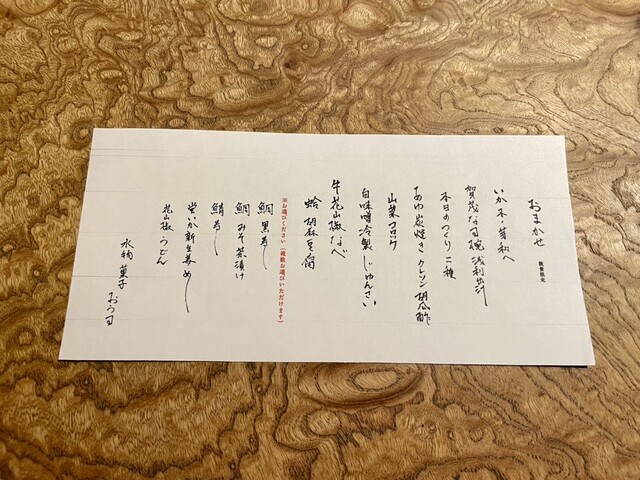 おまかせ
数量限定
いか木ノ芽和へ
賀茂なす 浅利出汁
本日のつくり 二種
あゆ炭焼き クレソン 胡瓜酢
山菜コロッケ
白味噌冷製 じゅんさい
牛花山椒なべ
蛤 胡麻豆腐
※お選びください(複数お選びいただけます)
鯛黒寿し
鯛みそ茶漬け
鯖寿し
蛍いか新生姜めし
花山椒うどん
水物 菓子 おうす